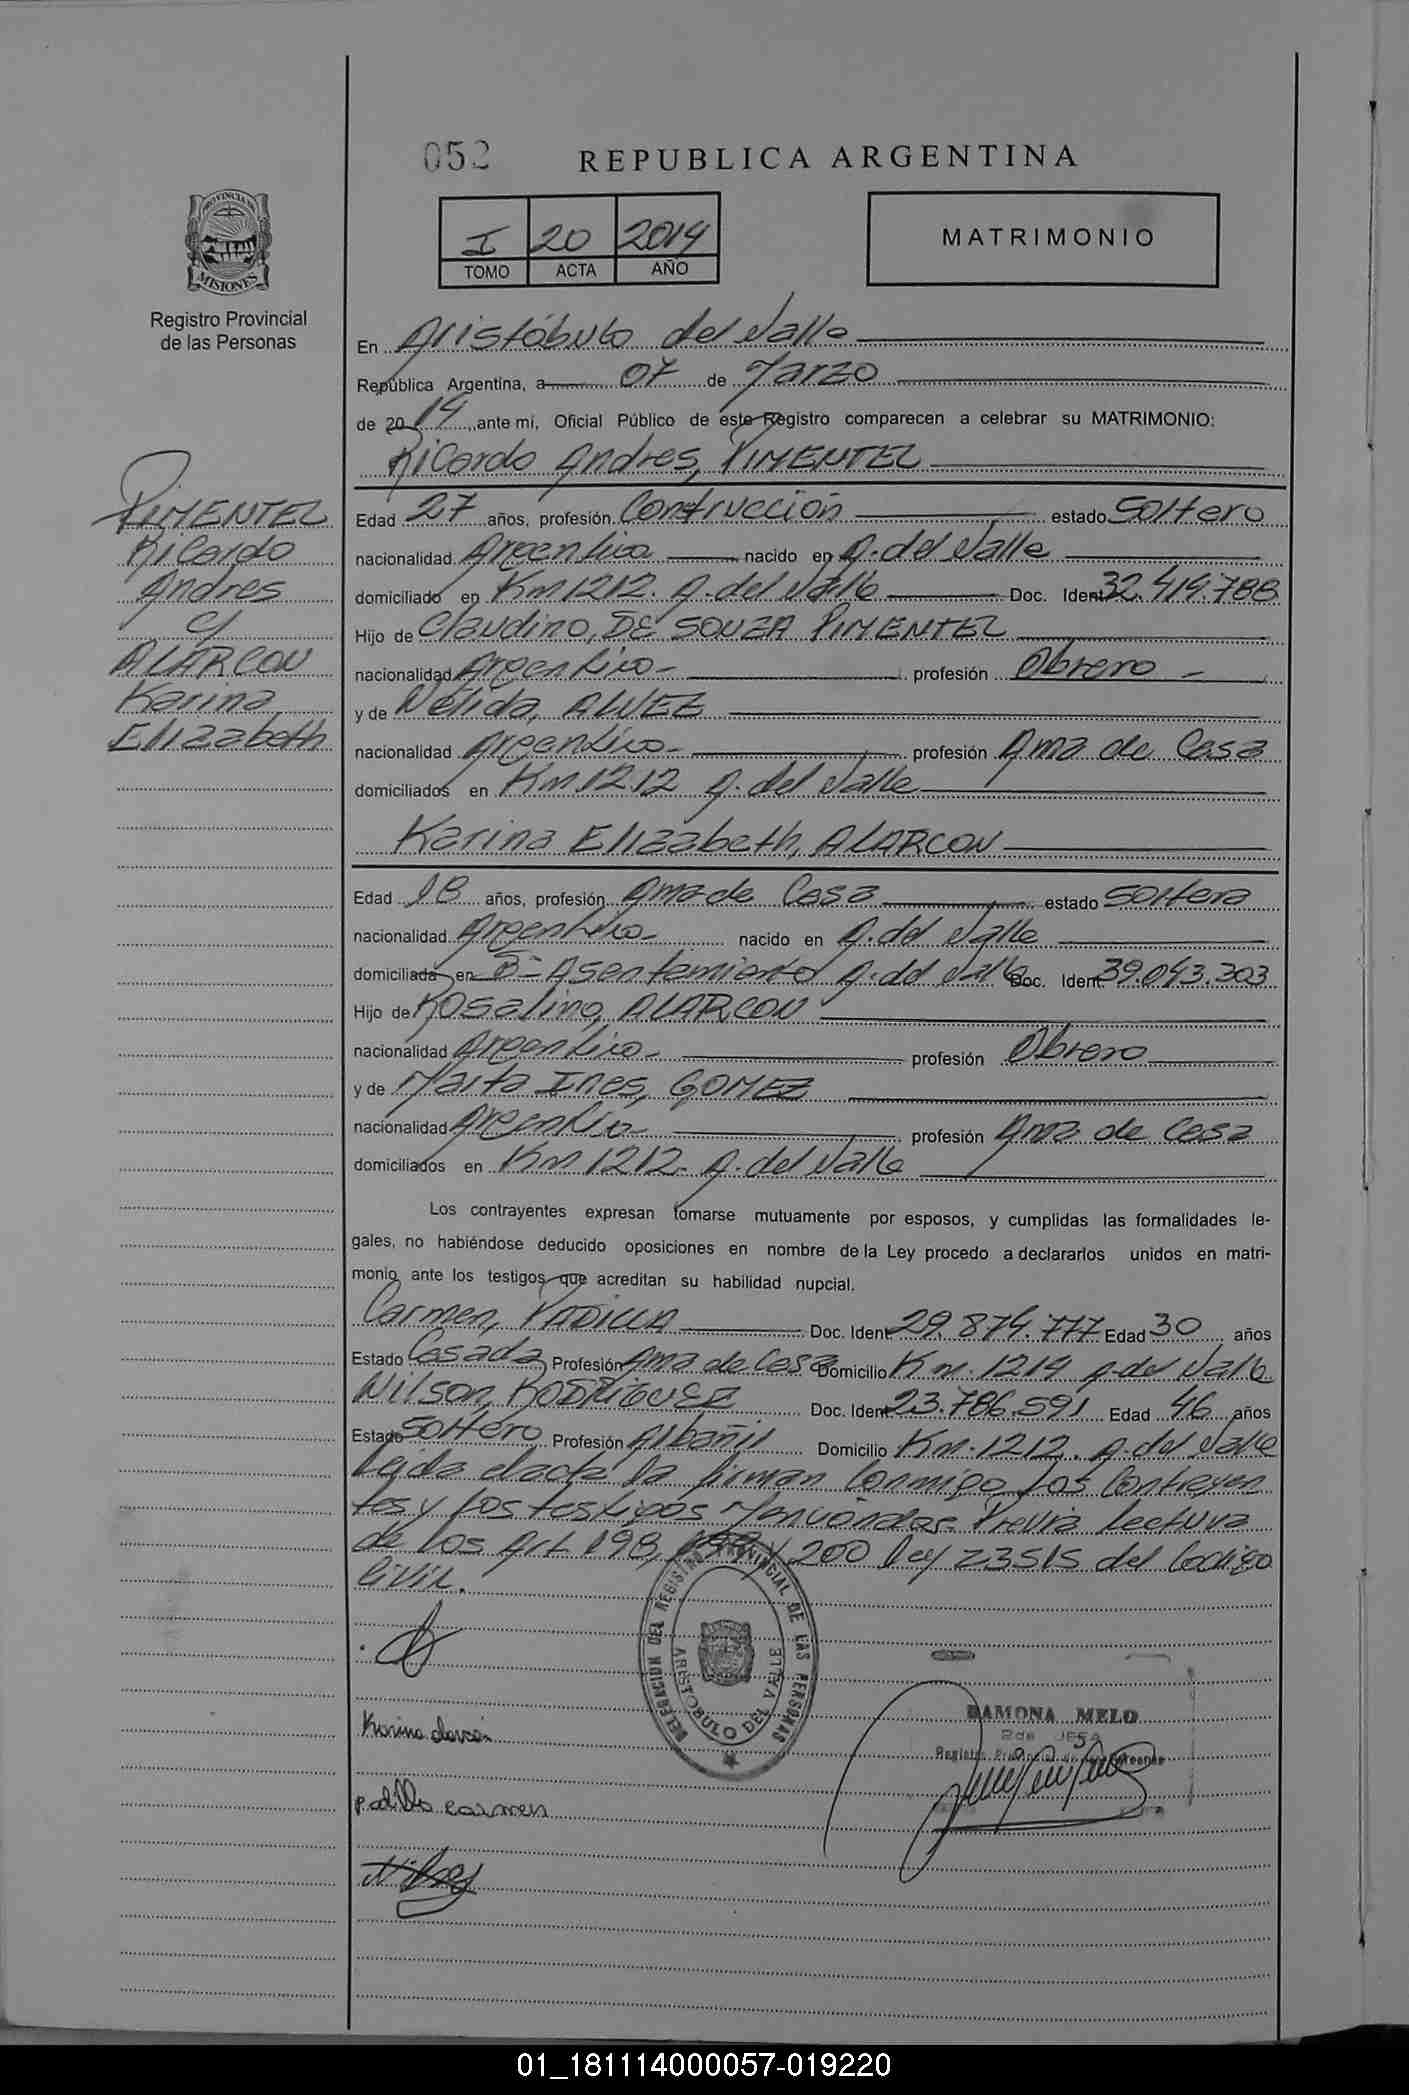 052
REPUBLICA ARGENTINA
I 20 2014
TOMO ACTA AÑO
MATRIMONIO
PROVINCIA DE
MISIONES
Registro Provincial
de las Personas
En Aristóbulo del Valle
República Argentina, a 07 de Marzo
de 2014, ante mi, Oficial Público de este Registro comparecen a celebrar su MATRIMONIO:
Ricardo Andres, PIMENTEL
PIMENTEL
Ricardo
Andres
c/
ALARCON
Karina
Elizabeth
Edad 27 años, profesión Contrucción estado Soltero
nacionalidad Argentino nacido en A. del Valle
domiciliado en Km 1212. A. del Valle Doc. Ident 32.419.788
Hijo de Claudino, DE SOUZA PIMENTEL
nacionalidad Argentino profesión Obrero
y de Nélida, ALVEZ
nacionalidad Argentino profesión Ama de Casa
domiciliados en Km 1212 A. del Valle
Karina Elizabeth, ALARCON
Edad 18 años, profesión Ama de Casa estado Soltera
nacionalidad Argentino nacido en A. del Valle
domiciliada en B- Asentamiento A. del Valle Doc. Ident 39.043.303
Hijo de Rosalino, ALARCON
nacionalidad Argentino profesión Obrero
y de Marta Ines, GOMEZ
nacionalidad Argentino profesión Ama de Casa
domiciliados en Km 1212- A. del Valle
Los contrayentes expresan tomarse mutuamente por esposos, y cumplidas las formalidades le-
gales, no habiéndose deducido oposiciones en nombre de la Ley procedo a declararlos unidos en matri-
monio ante los testigos que acreditan su habilidad nupcial.
Carmen, PADILLA Doc. Ident 29.874.777 Edad 30 años
Estado Casada Profesión Ama de Casa Domicilio Km. 1214 A. del Valle
Nilson, RODRIGUEZ Doc. Ident 23.786.591 Edad 46 años
Estado Soltero Profesión Albañil Domicilio Km. 1212. A. del Valle
Leída el acta la firman Conmigo los Contrayen
tes y los testigos Mencionados- Previa lectura
de los Art 198, 199 y 200 Ley 23515 del Codigo
Civil.
DELEGACION DEL REGISTRO PROVINCIAL DE LAS PERSONAS
ARISTOBULO DEL VALLE
Karina Alarcón
Padilla Carmen
RAMONA MELO
2da JEFA
01_181114000057-019220